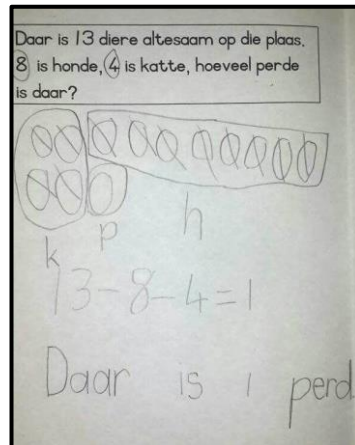 Daar is 13 diere altesaam op die plaas.
8 is honde, 4 is katte, hoeveel perde
is daar?
k p h
13-8-4=1
Daar is 1 perd